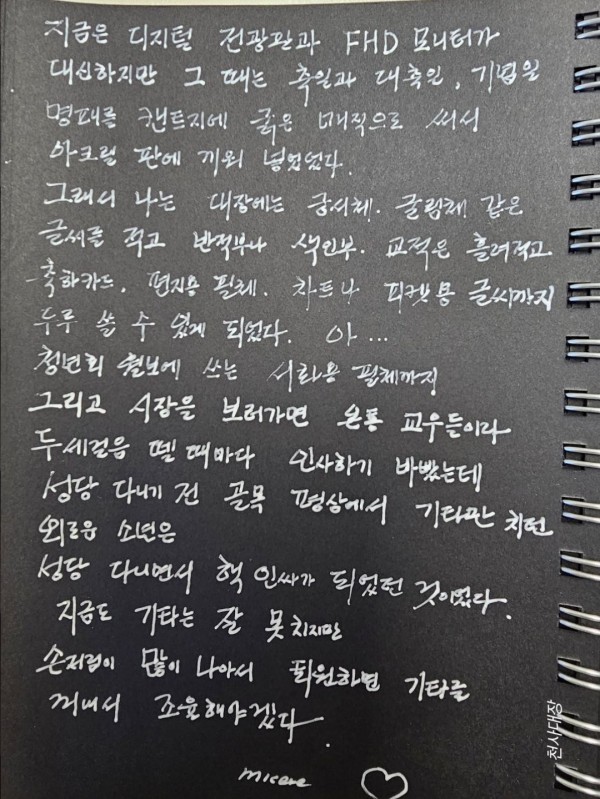 지금은 디지털 전광판과 FHD 모니터가
대신하지만 그 때는 축일과 대축일, 기념일
명패를 캔트지에 굵은 매직으로 써서
아크릴 판에 끼워 넣었었다.
그래서 나는 대장에는 궁서체. 굴림체 같은
글씨를 적고 반적부나 색인부. 교적은 흘려적고
축하카드. 편지용 필체. 차트나 피켓용 글씨까지
두루 쓸 수 있게 되었다. 아...
청년회 월보에 쓰는 서화용 필체까지
그리고 시장을 보러가면 온통 교우들이라
두세걸음 뗄 때마다 인사하기 바빴는데
성당 다니기 전 골목 평상에서 기타만 치던
외로운 소년은
성당 다니면서 핵 인싸가 되었던 것이었다.
지금도 기타는 잘 못 치지만
손저림이 많이 나아서 퇴원하면 기타를
꺼내서 조율해야겠다.
micare
천사대장